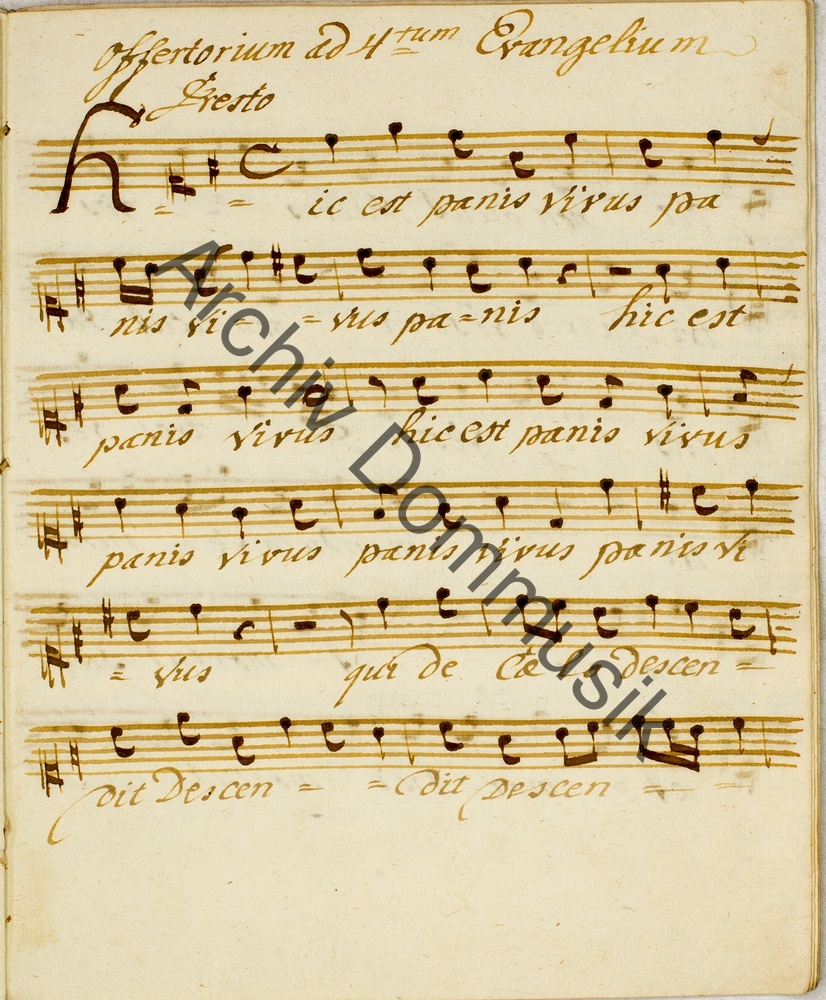 Offertorium ad 4tum Evangelium
Presto
Hic est panis vivus pa
nis vi = = vus pa = nis hic est
panis vivus hic est panis vivus
panis vivus panis vivus panis vi
= vus qui de Cælo descen =
dit Descen = = dit Descen = =
Archiv Dommusik